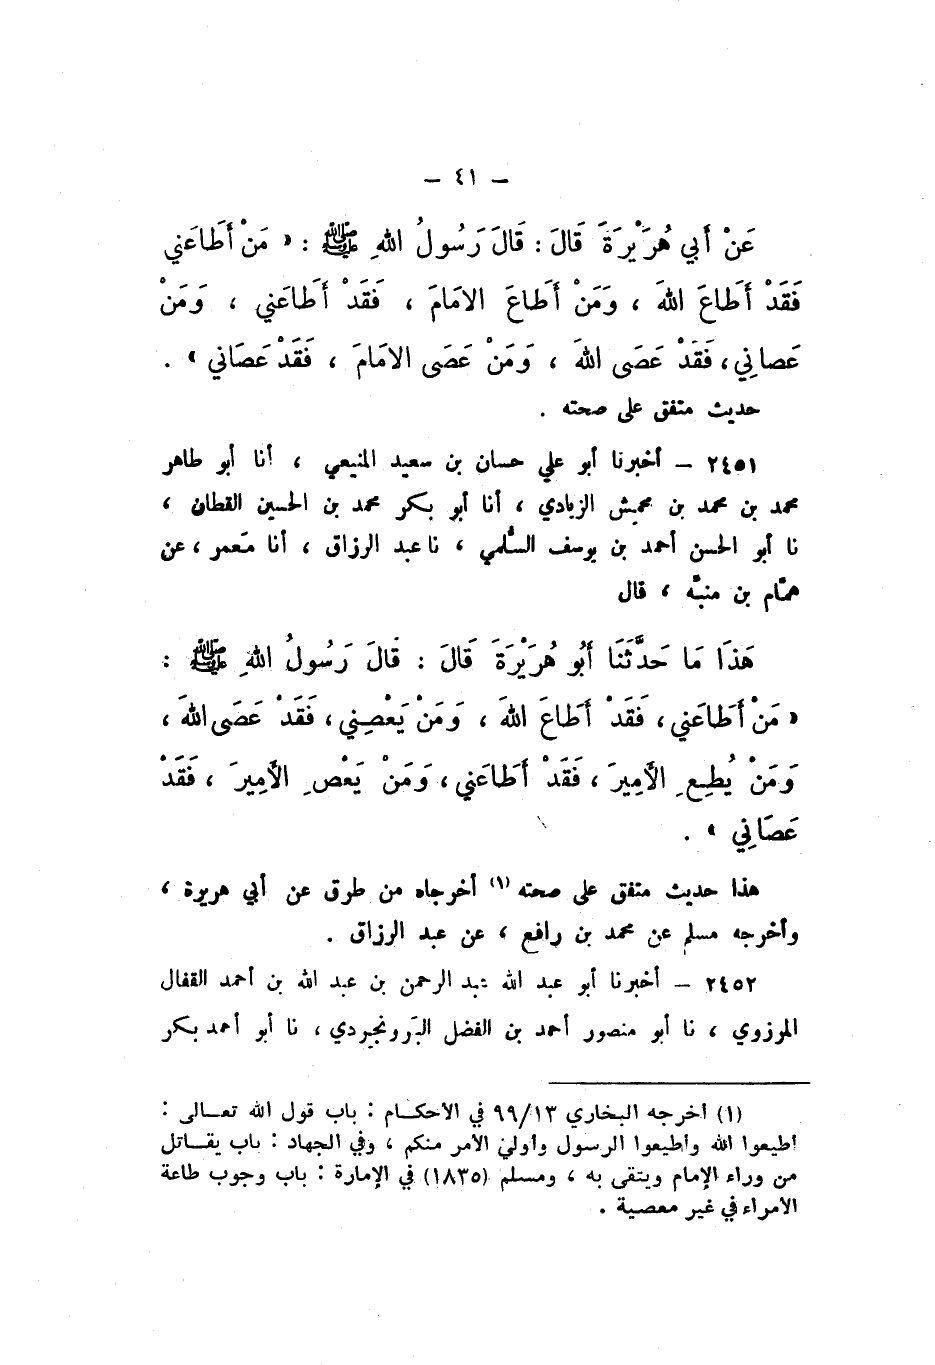 — ٤١ —
عَنْ أَبي هُرَيْرَةَ قَالَ : قَالَ رَسُولُ اللهِ ﷺ : « مَنْ أَطَاعَني
فَقَدْ أَطَاعَ اللهَ ، وَمَنْ أَطاعَ الامَامَ ، فَقَدْ أَطَاعَني ، وَمَنْ
عَصاني ، فَقَدْ عَصَى اللهَ ، وَمَنْ عَصَى الامَامَ ، فَقَدْ عَصَاني » .
حديث متفق على صحته .
٢٤٥١ – أخبرنا أبو علي حسان بن سعيد المنيعي ، أنا أبو طاهر
محمد بن محمد بن محمِش الزيادي ، أنا أبو بكر محمد بن الحسين القطان ،
نا أبو الحسن أحمد بن يوسف السُّلمي ، نا عبد الرزاق ، أنا مَعمر ، عن
همّام بن منبّه ، قال
هَذَا مَا حَدَّثَنَا أَبُو هُرَيْرَةَ قَالَ : قَالَ رَسُولُ اللهِ ﷺ :
« مَنْ أَطَاعَني ، فَقَدْ أَطَاعَ اللهَ ، وَمَنْ يَعْصِني ، فَقَدْ عَصَى اللهَ ،
وَمَنْ يُطِعِ الأَمِيرَ ، فَقَدْ أَطَاعَني ، وَمَنْ يَعْصِ الأَمِيرَ ، فَقَدْ
عَصَانِي » .
هذا حديث متفق على صحته (١) أخرجاه من طرق عن أبي هريرة ،
وأخرجه مسلم عن محمد بن رافع ، عن عبد الرزاق .
٢٤٥٢ – أخبرنا أبو عبد الله عبد الرحمن بن عبد الله بن أحمد القفال
المروزي ، نا أبو منصور أحمد بن الفضل البَرونجِردي ، نا أبو أحمد بكر
(١) أخرجه البخاري ٩٩/١٣ في الأحكام : باب قول الله تعالى :
أطيعوا الله وأطيعوا الرسول وأولي الأمر منكم ، وفي الجهاد : باب يقاتل
من وراء الإمام ويتقى به ، ومسلم (١٨٣٥) في الإمارة : باب وجوب طاعة
الأمراء في غير معصية .